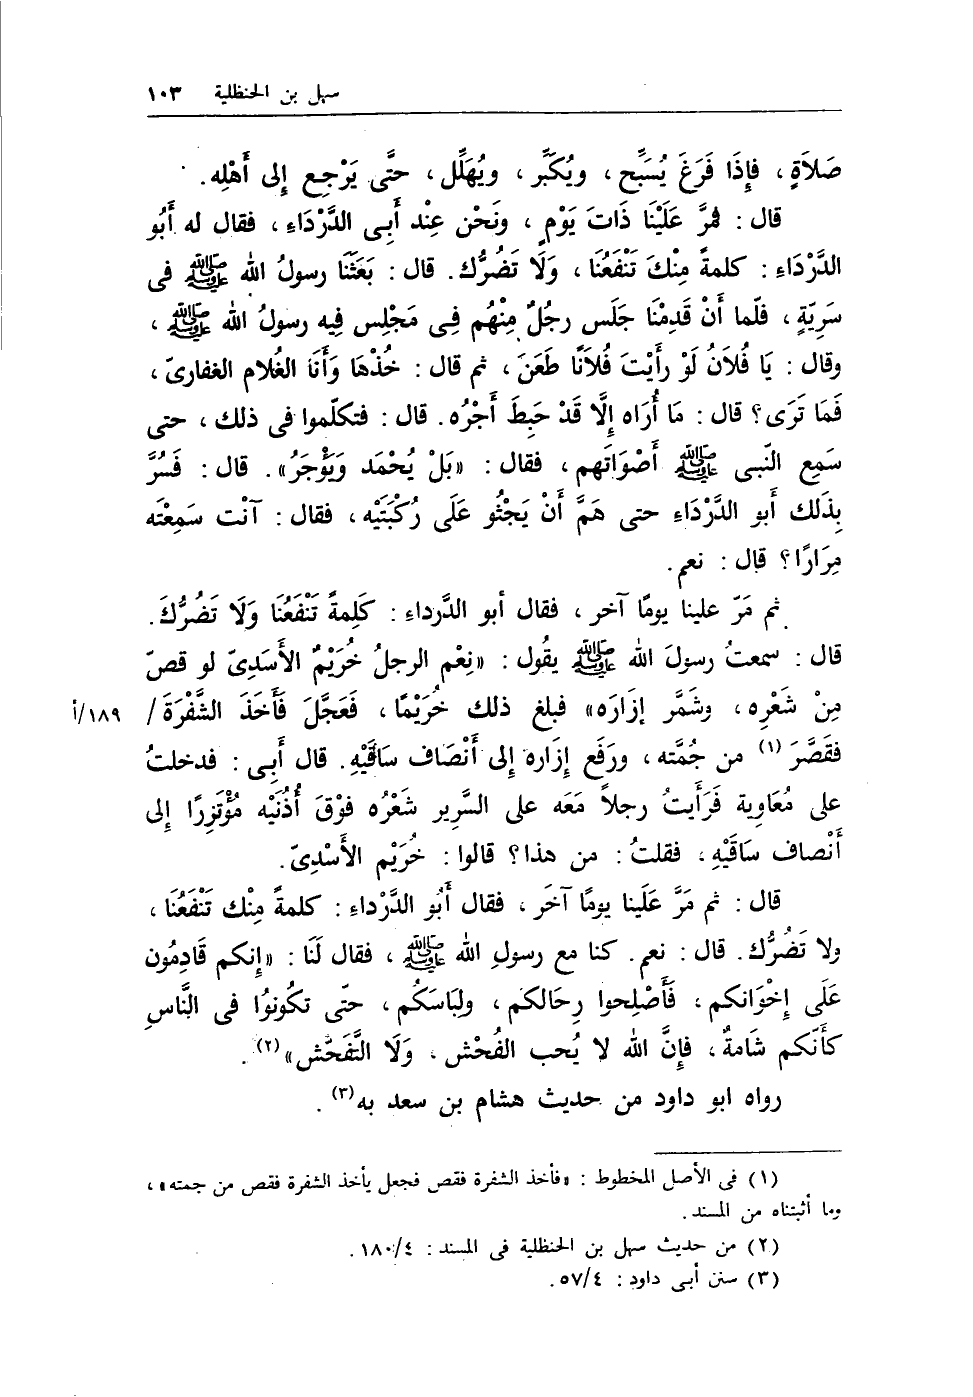 سهل بن الحنظلية ١٠٣
صَلاَةٍ ، فإِذَا فَرَغَ يُسَبِّح ، ويُكَبِّر ، ويُهَلِّل ، حتَّى يَرْجِع إلى أَهْلِه .
قال : فمرَّ عَلَيْنَا ذَاتَ يَوْمٍ ، ونَحْن عِنْد أَبِى الدَّرْدَاءِ ، فقال له أَبُو
الدَّرْدَاءِ : كلمةً مِنْكَ تَنْفَعُنَا ، وَلَا تَضُرُّك . قال : بَعَثَنَا رسولُ الله ﷺ فى
سَرِيّةٍ ، فلّما أَنْ قَدِمْنَا جَلَس رجُلٌ مِنْهُم فِى مَجْلِس فِيه رسولُ الله ﷺ ،
وقال : يَا فُلاَنُ لَوْ رأَيْتَ فُلاَنًا طَعَنَ ، ثم قال : خُذْهَا وَأَنَا الغُلام الغفارىّ ،
فَمَا تَرَى ؟ قال : مَا أُرَاه إِلَّا قَدْ حَبِطَ أَجْرُه . قال : فتكلّموا فى ذلك ، حتى
سَمِع النّبى ﷺ أَصْوَاتَهم ، فقال : «بَلْ يُحْمَد وَيُؤْجَرُ» . قال : فَسُرَّ
بِذَلك أبو الدَّرْدَاءِ حتى هَمَّ أَنْ يَجْثُو عَلَى رُكْبَتَيْه ، فقال : آنْت سَمِعْتَه
مِرَارًا ؟ قال : نعم .
ثم مَرّ علينا يومًا آخر ، فقال أبو الدَّرداءِ : كَلِمةً تَنْفَعُنَا وَلَا تَضُرُّكَ .
قال : سمعتُ رسولَ الله ﷺ يقُول : «نِعْم الرجلُ خُرَيْمٌ الأَسَدِىّ لو قصّ
مِنْ شَعْرِه ، وشَمَّر إزَارَه» فبلغ ذلك خُرَيْمًا ، فَعَجَّلَ فَأَخَذَ الشَّفْرَةَ / ١٨٩/أ
فقَصَّرَ (١) من جُمَّته ، ورَفَع إِزَاره إلى أَنْصَاف سَاقَيْهِ . قال أَبِى : فدخلتُ
على مُعَاوية فَرَأَيتُ رجلاً مَعَه على السَّرير شَعْرُه فوْقَ أُذُنَيْه مُؤْتَزِرًا إلى
أَنْصاف سَاقَيْهِ ، فقلتُ : من هذا ؟ قالوا : خُرَيْم الأَسْدِىّ .
قال : ثم مَرَّ عَلَينا يومًا آخَر ، فقال أَبُو الدَّرْداءِ : كلمةً مِنْك تَنْفَعُنَا ،
ولا تَضُرُّك . قال : نعم . كنا مع رسولِ الله ﷺ ، فقال لَنَا : «إنكم قَادِمُون
عَلَى إِخْوَانكم ، فَأَصْلِحوا رِحَالكم ، ولِبَاسَكُم ، حتّى تكُونوُا فى النَّاسِ
كأَنّكم شَامةٌ ، فإِنَّ الله لا يُحب الفُحْش ، وَلَا التَّفَحّش»(٢) .
رواه ابو داود من حديث هشام بن سعد به(٣) .
(١) فى الأصل المخطوط : «فأخذ الشفرة فقص فجعل يأخذ الشفرة فقص من جمته» ،
وما أثبتناه من المسند .
(٢) من حديث سهل بن الحنظلية فى المسند : ١٨٠/٤ .
(٣) سنن أبى داود : ٥٧/٤ .